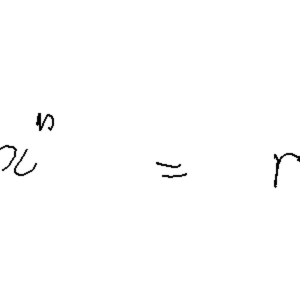 xⁿ = r